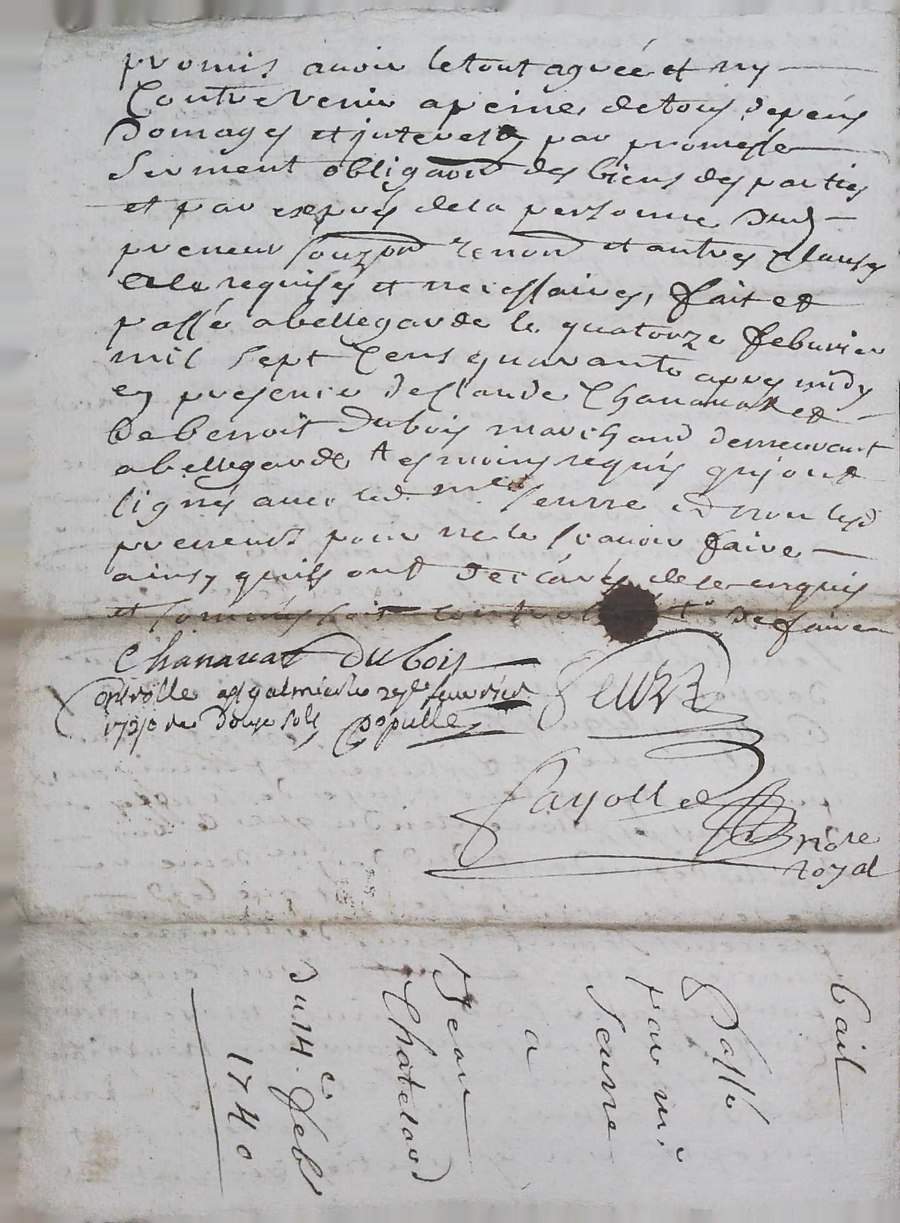 promis avoir le tout agréé et ny
Contrevenir a peine de tous depens
Domages et interests par promesse
Serment obligaon des biens des parties
et par exprés de la personne dud
preneur Souzon Renon et autres Clauses
a ce requises et necessaires, fait et
passé a bellegarde le quatorze feburier
mil sept Cens quarante apres midy
en presence de Claude Chanavat et
de benoit Dubois marchand demeurant
a bellegarde tesmoins requis qui ont
signés avec led me Seurre et non led
preneur pour ne le scavoir faire
ainsy quils ont declarés de ce enquis
et sommés soit controllé de faire
Chanavat Dubois
Seurre
Controllé a St galmier le feuvrier
1740 Re Douze sols Populle
fayolle
Nore
royal
bail
Passé
par m.e
Seurre
a
Jean
Chatelard
Du 14.e feb
1740